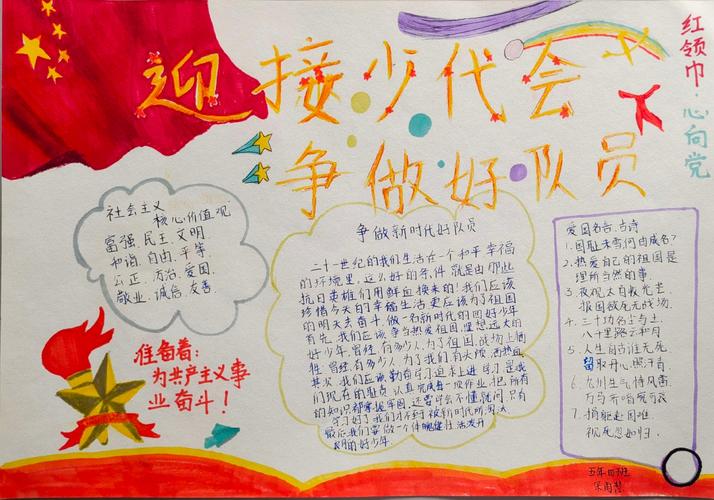 迎接少代会
争做好队员
红领巾·心向党
社会主义
核心价值观
富强 民主 文明
和谐 自由 平等
公正 法治 爱国
敬业 诚信 友善
准备着:
为共产主义事
业奋斗!
争做新时代好队员
二十一世纪的我们生活在一个和平幸福
的环境里,这么好的条件就是由那些
抗日英雄们用鲜血换来的!我们应该
珍惜今天的幸福生活更应该为了祖国
的明天去奋斗,做一名新时代的四好少年
首先,我们应该争当热爱祖国,理想远大的
好少年,曾经,有多少人,为了祖国,战场上牺
牲,曾经,有多少人,为了我们
其次,我们应该勤奋学习,追求上进,学习是我
们现在的
认真完成每一次作业,把所有
的知识都掌握牢固,还要学会不懂就问,只有
学习好了我们才不会被新时代所淘汰
最后我们要做一个体魄强健活泼开
朗的好少年.
爱国名言、古诗
1.国耻未雪何由成名?
2.热爱自己的祖国是
理所当然的事.
3.
报国敢死无战场.
4.三十功名尘与土,
八千里路云和月.
5.人生自古谁无死
留取丹心照汗青.
6.九州生气恃风雷
万马齐喑究可哀
7.捐躯赴国难
视死忽如归.
五年四班